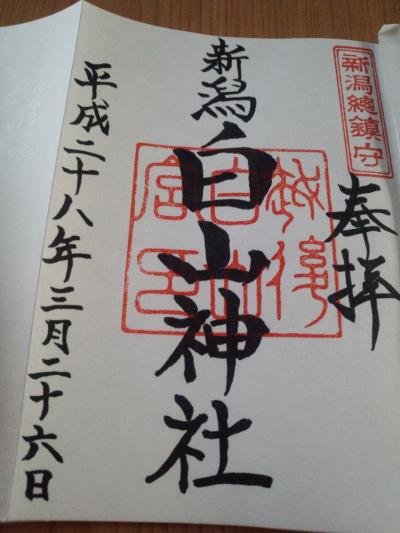 新潟總鎮守
奉拝
新潟白山神社
越後白山宮印
平成二十八年三月二十六日